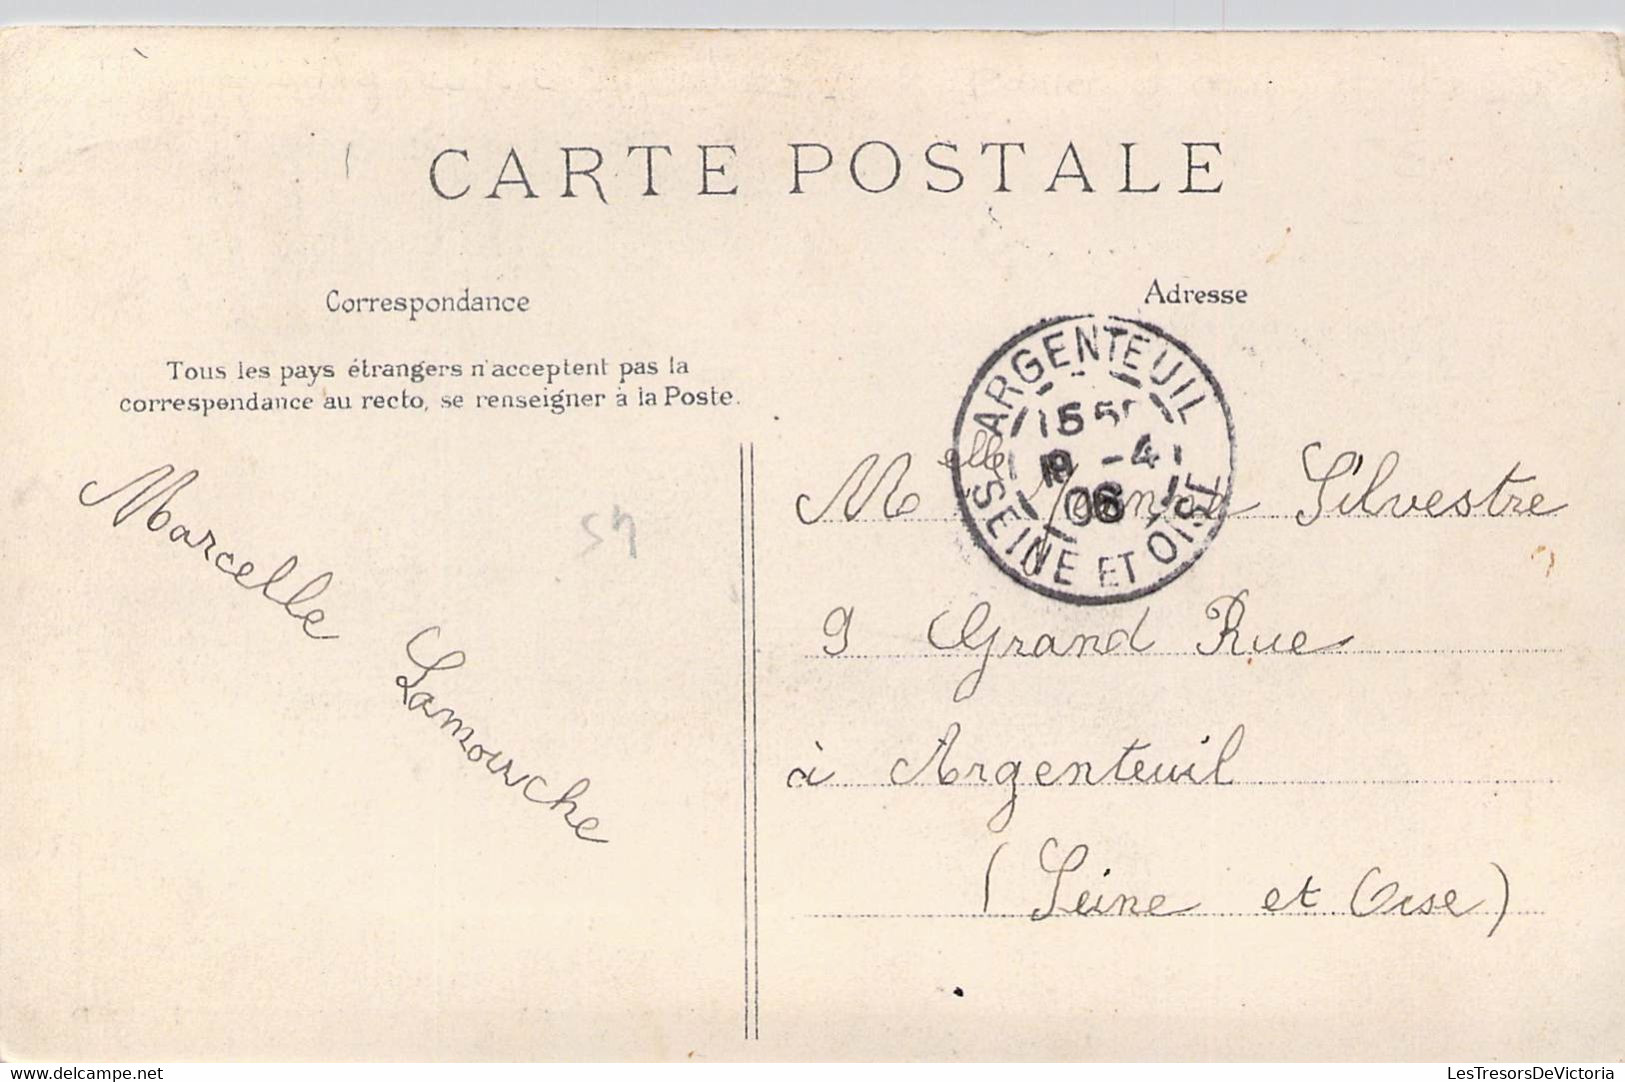 CARTE POSTALE
Correspondance
Tous les pays étrangers n'acceptent pas la
correspondance au recto, se renseigner à la Poste.
Marcelle
Lamouche
54
Adresse
ARGENTEUIL
-4
06
SEINE ET OISE
Melle Jeanne Silvestre
9 Grand Rue
à Argenteuil
(Seine et Oise)
delcampe.net
LesTresorsDeVictoria